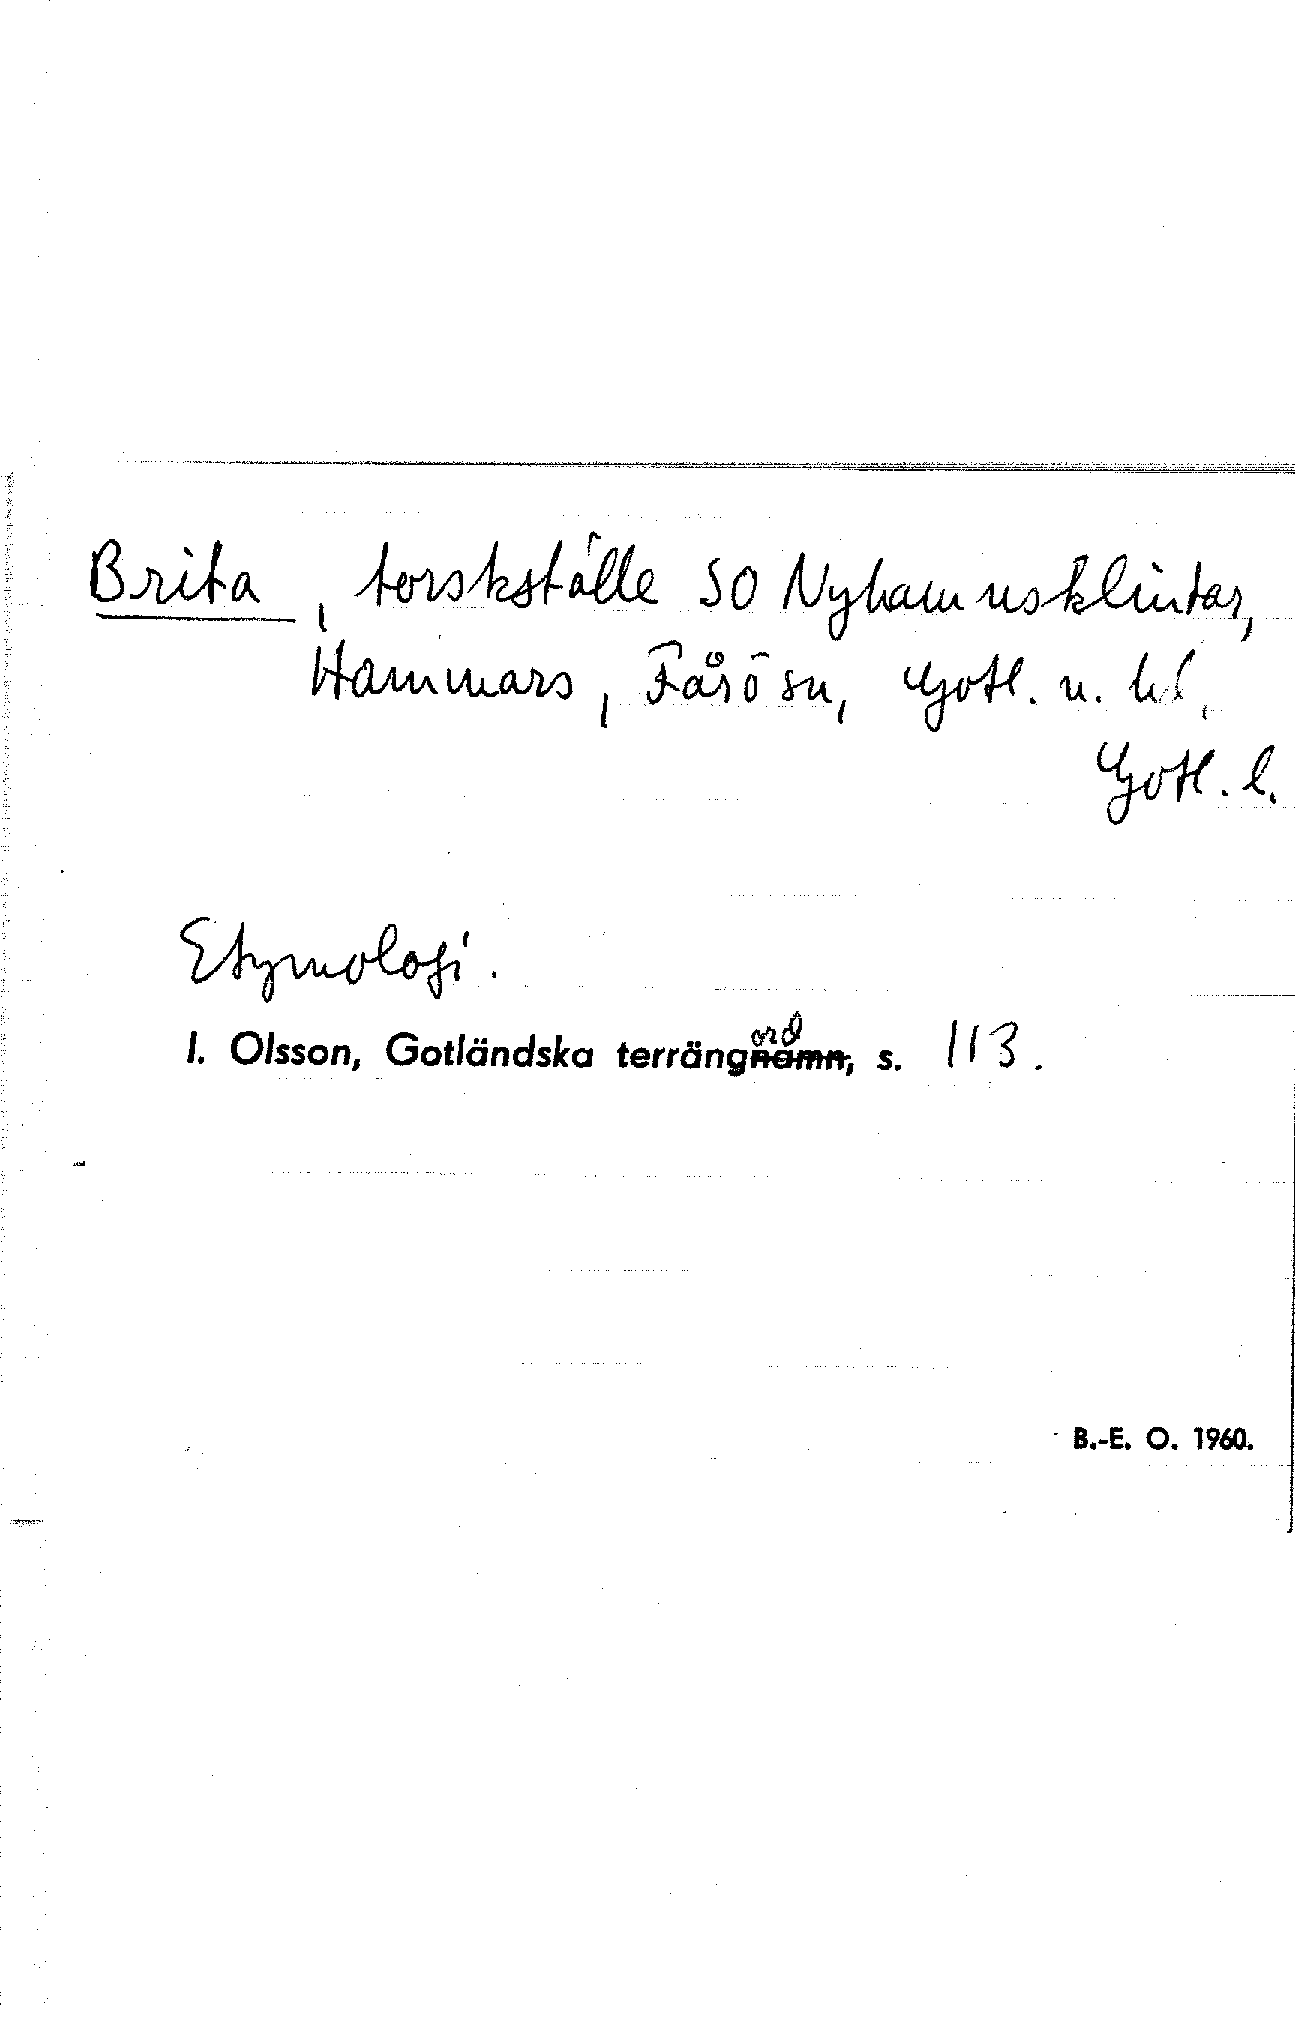 Brita, torskställe SO Nyhamnsklintar,
Hammars, Fårö sn, Gotl. n. hd,
Gotl. l.
Etymologi.
ord
I. Olsson, Gotländska terrängnamn, s. 113.
B.-E. O. 1960.